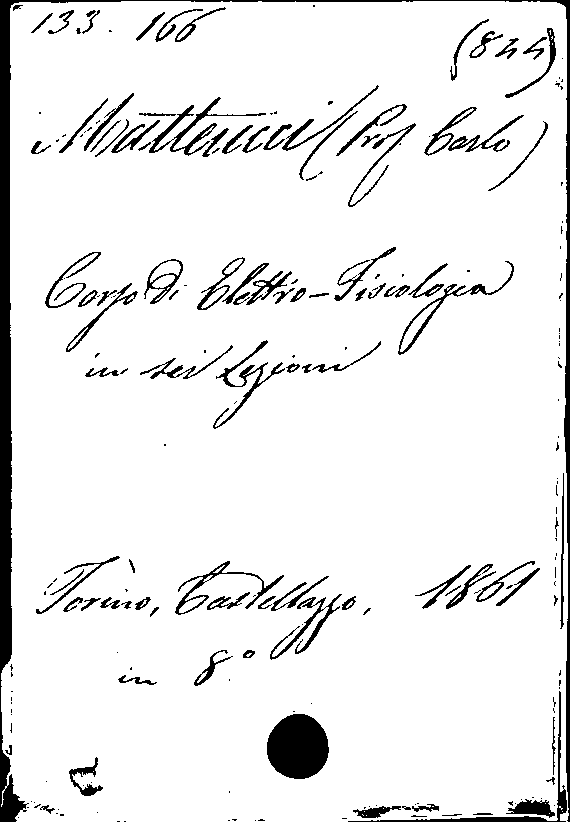 133. 166
(844)
Matteucci (Prof Carlo)
Corso di Elettro-Fisiologia
in sei Lezioni
Torino, Castellazzo, 1861
in 8°